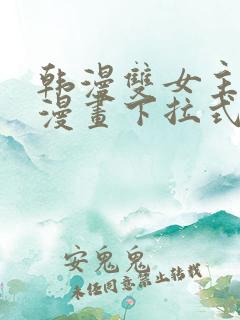 韩漫雙女主
漫畫下拉式
安鬼鬼
未经同意禁止转载